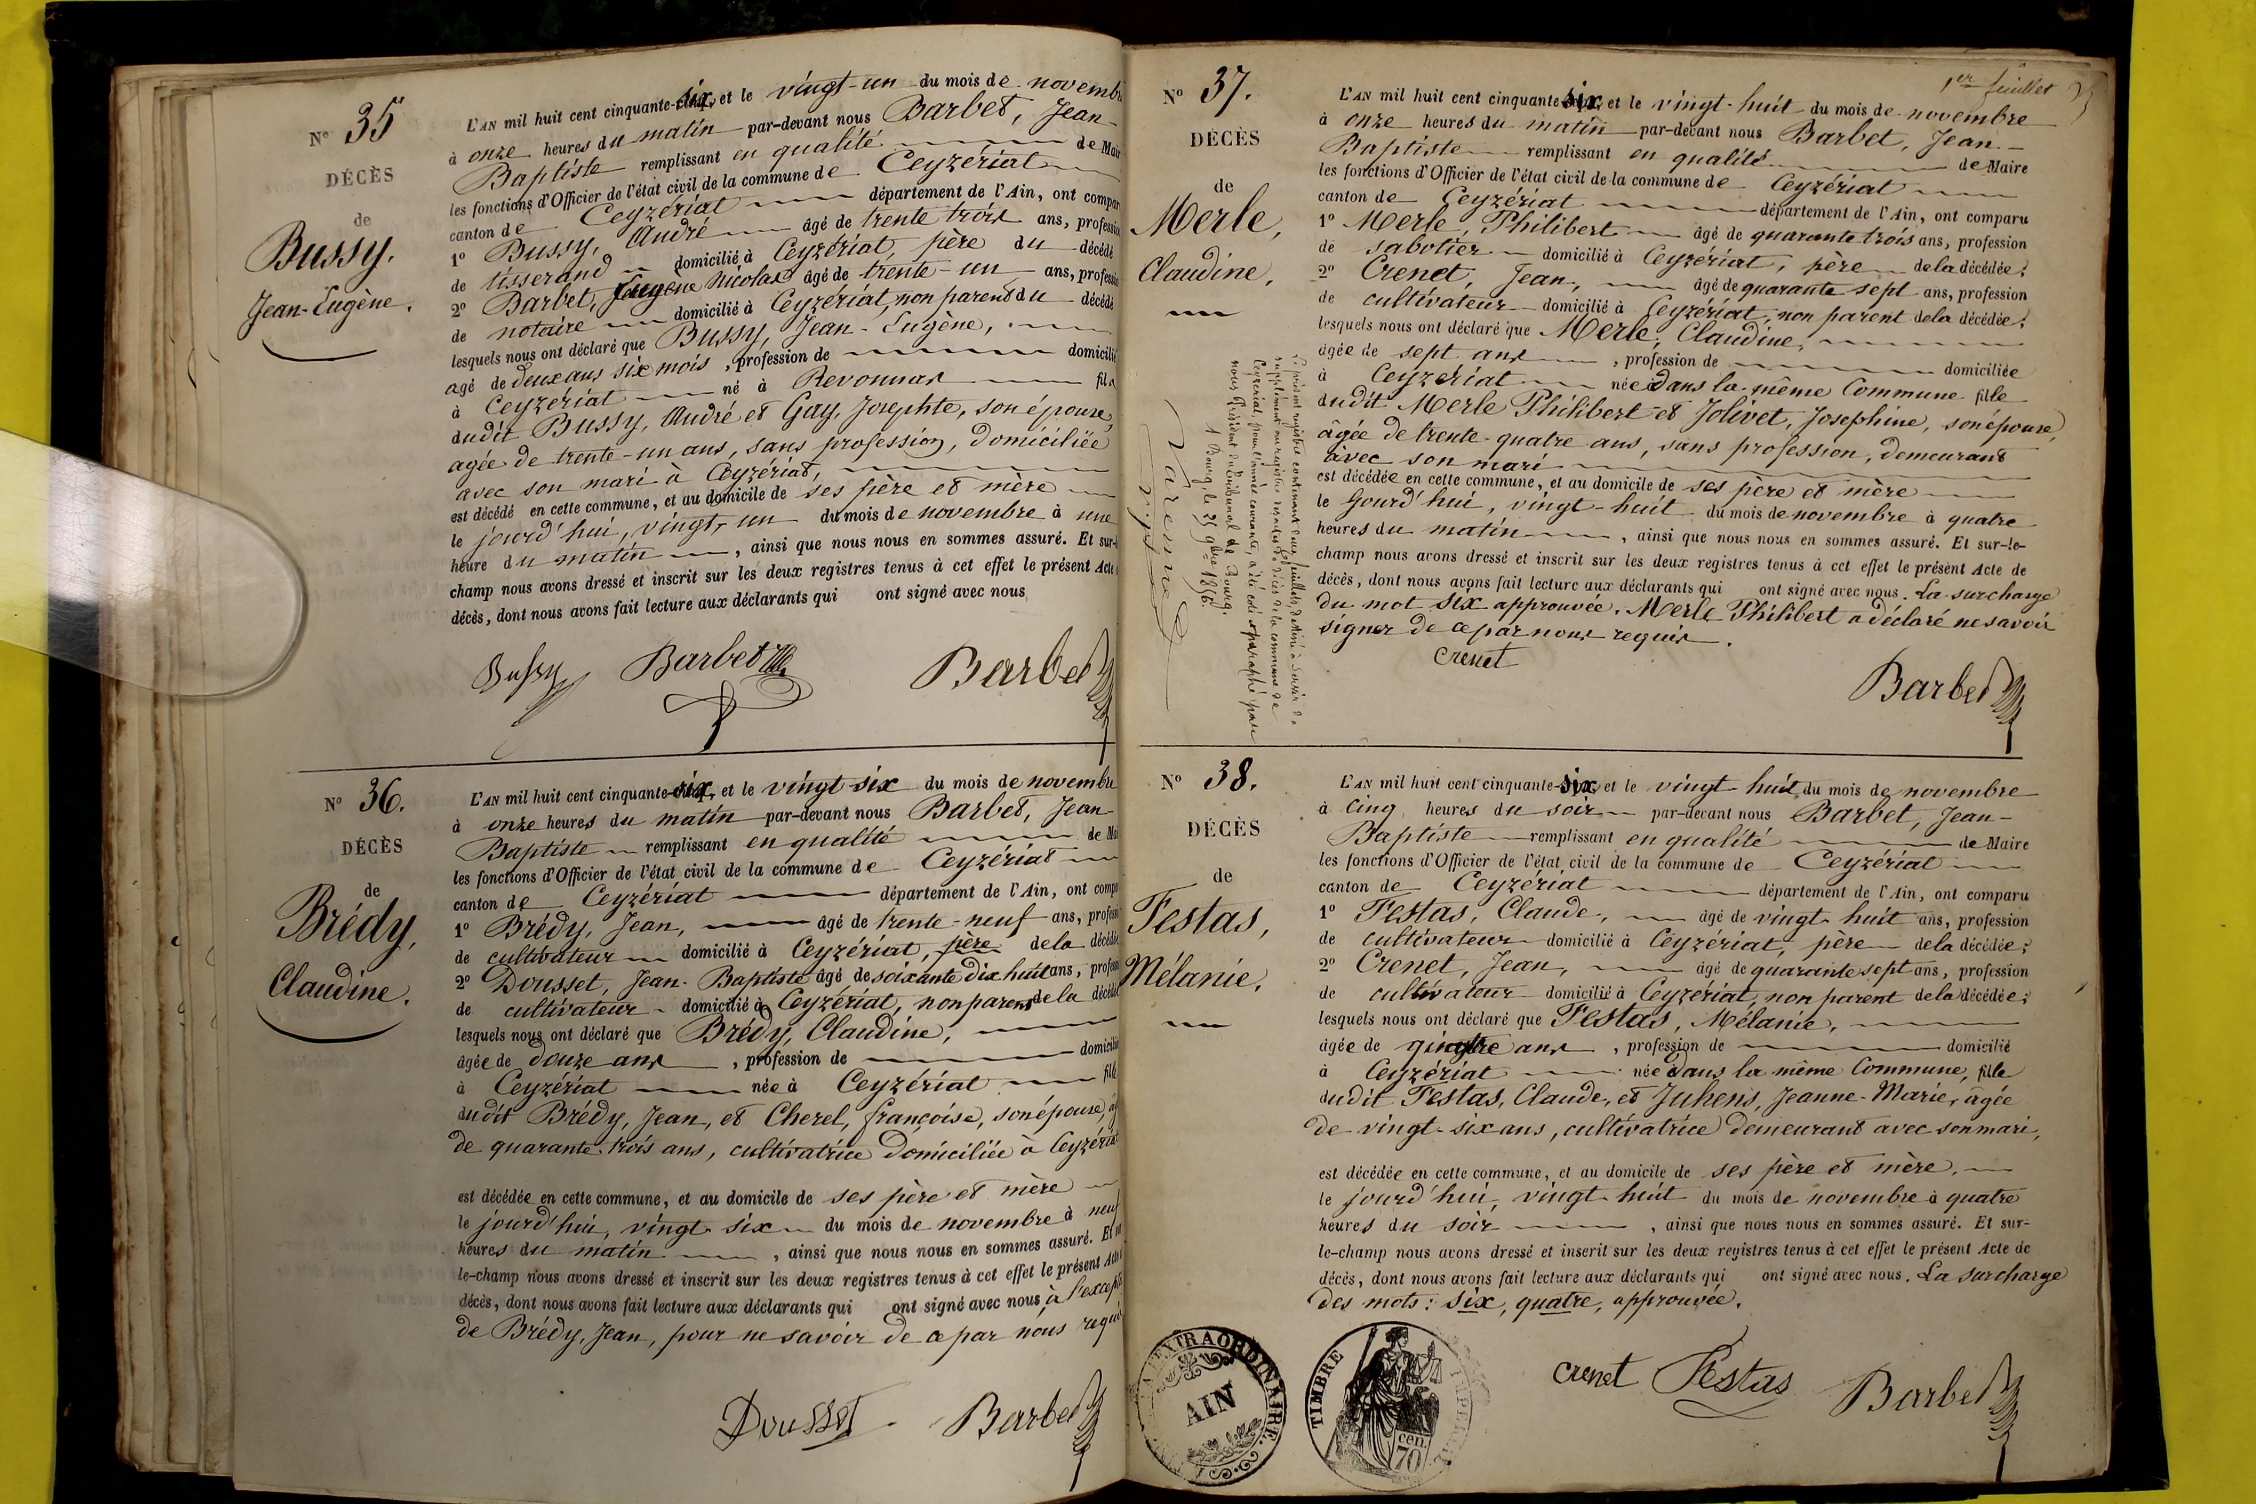 N° 35
DÉCÈS
de
Bussy,
Jean-Eugène.
L'AN mil huit cent cinquante-six, et le vingt-un du mois de novembre
à onze heures du matin par-devant nous Barbet, Jean-
Baptiste remplissant en qualité de Maire
les fonctions d'Officier de l'état civil de la commune de Ceyzériat
canton de Ceyzériat département de l'Ain, ont comparu
1° Bussy, André âgé de trente trois ans, profession
de tisserand domicilié à Ceyzériat, père du décédé
2° Barbet, Nicolas âgé de trente-un ans, profession
de notaire domicilié à Ceyzériat, non parent du décédé
lesquels nous ont déclaré que Bussy, Jean-Eugène,
agé de deux ans six mois, profession de domicilié
à Ceyzériat né à Revonnas fils
dudit Bussy, André et Gay, Josephte, son épouse,
agée de trente-un ans, sans profession, domiciliée
avec son mari à Ceyzériat,
est décédé en cette commune, et au domicile de ses père et mère
le jourd'hui, vingt-un du mois de novembre à une
heure du matin, ainsi que nous nous en sommes assuré. Et sur-le
champ nous avons dressé et inscrit sur les deux registres tenus à cet effet le présent Acte
décès, dont nous avons fait lecture aux déclarants qui ont signé avec nous
Bussy Barbet Barbet
N° 36.
DÉCÈS
de
Brédy,
Claudine.
L'AN mil huit cent cinquante-six, et le vingt six du mois de novembre
à onze heures du matin par-devant nous Barbet, Jean-
Baptiste remplissant en qualité de Mai
les fonctions d'Officier de l'état civil de la commune de Ceyzériat
canton de Ceyzériat département de l'Ain, ont compa
1° Brédy, Jean, âgé de trente-neuf ans, profession
de cultivateur domicilié à Ceyzériat, père de la décédée
2° Dousset, Jean-Baptiste âgé de soixante dix huit ans, profession
de cultivateur domicilié à Ceyzériat, non parent de la décédée
lesquels nous ont déclaré que Brédy, Claudine,
âgée de douze ans, profession de domiciliée
à Ceyzériat née à Ceyzériat fille
dudit Brédy, Jean, et Cherel, françoise, son épouse, âg
de quarante-trois ans, cultivatrice domiciliée à Ceyzériat
est décédée en cette commune, et au domicile de ses père et mère
le jourd'hui, vingt-six du mois de novembre à neuf
heures du matin, ainsi que nous nous en sommes assuré. Et sur
le-champ nous avons dressé et inscrit sur les deux registres tenus à cet effet le présent Acte
décès, dont nous avons fait lecture aux déclarants qui ont signé avec nous, à l'except
de Brédy, Jean, pour ne savoir de ce par nous requi
Dousset Barbet
1er feuillet
N° 37.
DÉCÈS
de
Merle,
Claudine.
L'AN mil huit cent cinquante six, et le vingt-huit du mois de novembre
à onze heures du matin par-devant nous Barbet, Jean-
Baptiste remplissant en qualité de Maire
les fonctions d'Officier de l'état civil de la commune de Ceyzériat
canton de Ceyzériat département de l'Ain, ont comparu
1° Merle, Philibert âgé de quarante trois ans, profession
de sabotier domicilié à Ceyzériat, père de la décédée;
2° Crenet, Jean, âgé de quarante sept ans, profession
de cultivateur domicilié à Ceyzériat, non parent de la décédée;
lesquels nous ont déclaré que Merle, Claudine,
âgée de sept ans, profession de domiciliée
à Ceyzériat née dans la même Commune fille
dudit Merle Philibert et Jolivet, Josephine, son épouse,
âgée de trente-quatre ans, sans profession, demeurant
avec son mari
est décédée en cette commune, et au domicile de ses père et mère
le jourd'hui, vingt-huit du mois de novembre à quatre
heures du matin, ainsi que nous nous en sommes assuré. Et sur-le-
champ nous avons dressé et inscrit sur les deux registres tenus à cet effet le présent Acte de
décès, dont nous avons fait lecture aux déclarants qui ont signé avec nous. La surcharge
du mot six approuvée. Merle Philibert a déclaré ne savoir
signer de ce par nous requis.
Crenet
Barbet
Le présent registre contenant deux feuillets, destiné à servir de
supplément au registre des actes de décès de la commune de
Ceyzériat, pour l'année courante, a été coté et paraphé par
nous Président du Tribunal de Bourg.
A Bourg, le 25 9bre 1856.
Varenne
N° 38.
DÉCÈS
de
Festas,
Mélanie.
L'AN mil huit cent cinquante-six, et le vingt-huit du mois de novembre
à cinq heures du soir par-devant nous Barbet, Jean-
Baptiste remplissant en qualité de Maire
les fonctions d'Officier de l'état civil de la commune de Ceyzériat
canton de Ceyzériat département de l'Ain, ont comparu
1° Festas, Claude, âgé de vingt-huit ans, profession
de cultivateur domicilié à Ceyzériat, père de la décédée;
2° Crenet, Jean, âgé de quarante sept ans, profession
de cultivateur domicilié à Ceyzériat, non parent de la décédée;
lesquels nous ont déclaré que Festas, Mélanie,
âgée de quatre ans, profession de domicilié
à Ceyzériat née dans la même Commune, fille
dudit Festas, Claude, et Juhens, Jeanne-Marie, âgée
de vingt-six ans, cultivatrice demeurant avec son mari,
est décédée en cette commune, et au domicile de ses père et mère,
le jourd'hui, vingt-huit du mois de novembre à quatre
heures du soir, ainsi que nous nous en sommes assuré. Et sur-
le-champ nous avons dressé et inscrit sur les deux registres tenus à cet effet le présent Acte de
décès, dont nous avons fait lecture aux déclarants qui ont signé avec nous. La surcharge
des mots: six, quatre, approuvée.
Crenet Festas Barbet
EXTRAORDINAIRE.
AIN
TIMBRE IMPÉRIAL
70 cen.